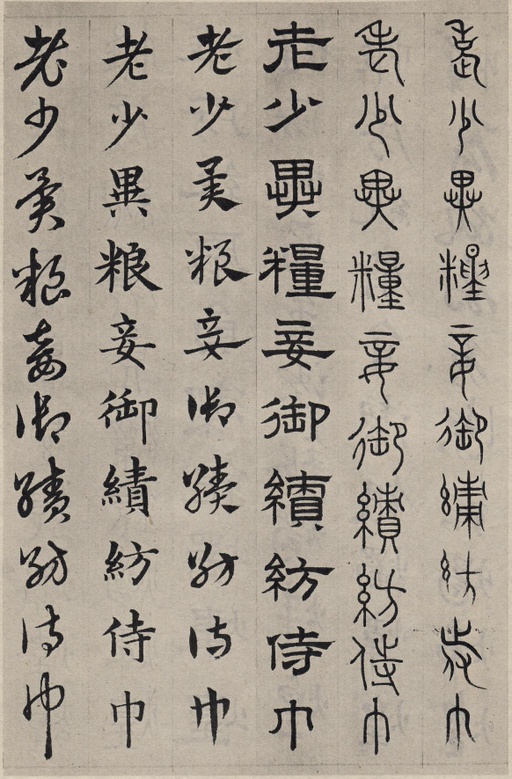 老少異糧妾御績紡侍巾
老少異糧妾御績紡侍巾
老少異糧妾御績紡侍巾
老少異粮妾御績紡侍巾
老少異粮妾御績紡侍巾
老少異粮妾御績紡侍巾